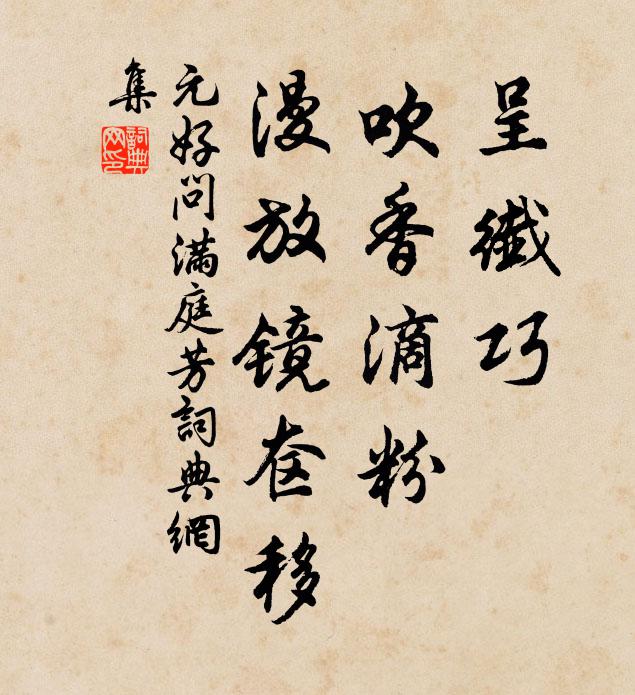 呈纖巧
吹香滴粉
漫放鏡奁移
元好问滿庭芳詞典網
集
詞典
网印